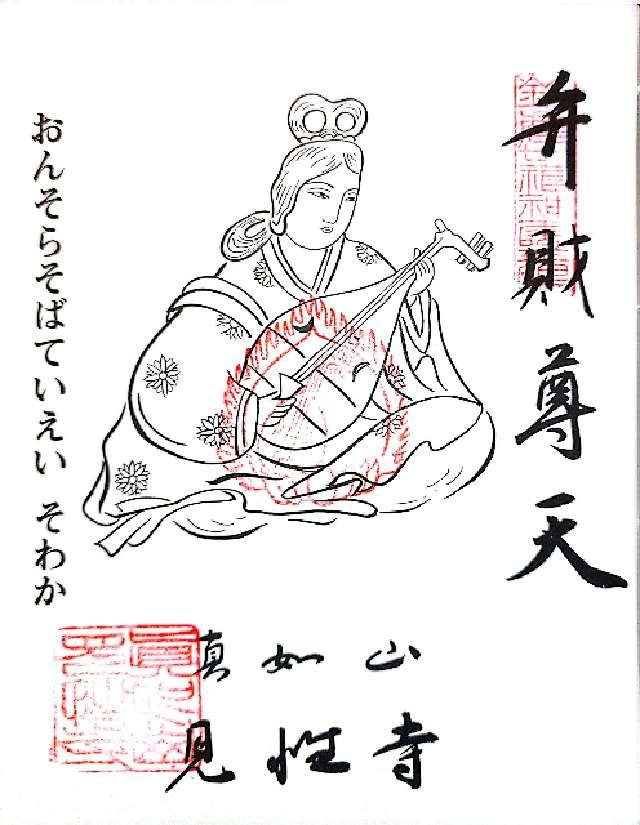 弁財尊天
おんそらそばていえい そわか
真如山
見性寺